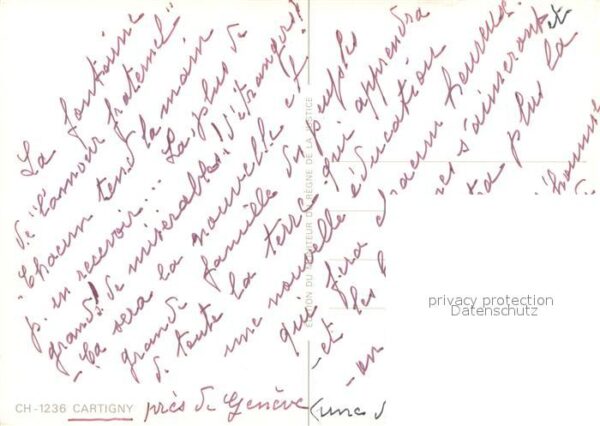 La fontaine
de "l'amour fraternel"
"Chacun tend la main
p. en recevoir... La plus de
grands! de misérables! d'étrangers!
- Ça sera la nouvelle et
grande famille du peuple
de toute la terre qui apprendra
une nouvelle éducation
qui fera chacun heureux.
- et les s'aimeront et
- on plus la
l'homme
CH-1236 CARTIGNY près de Genève (une
EDITION DU MONITEUR DU REGNE DE LA JUSTICE
privacy protection
Datenschutz